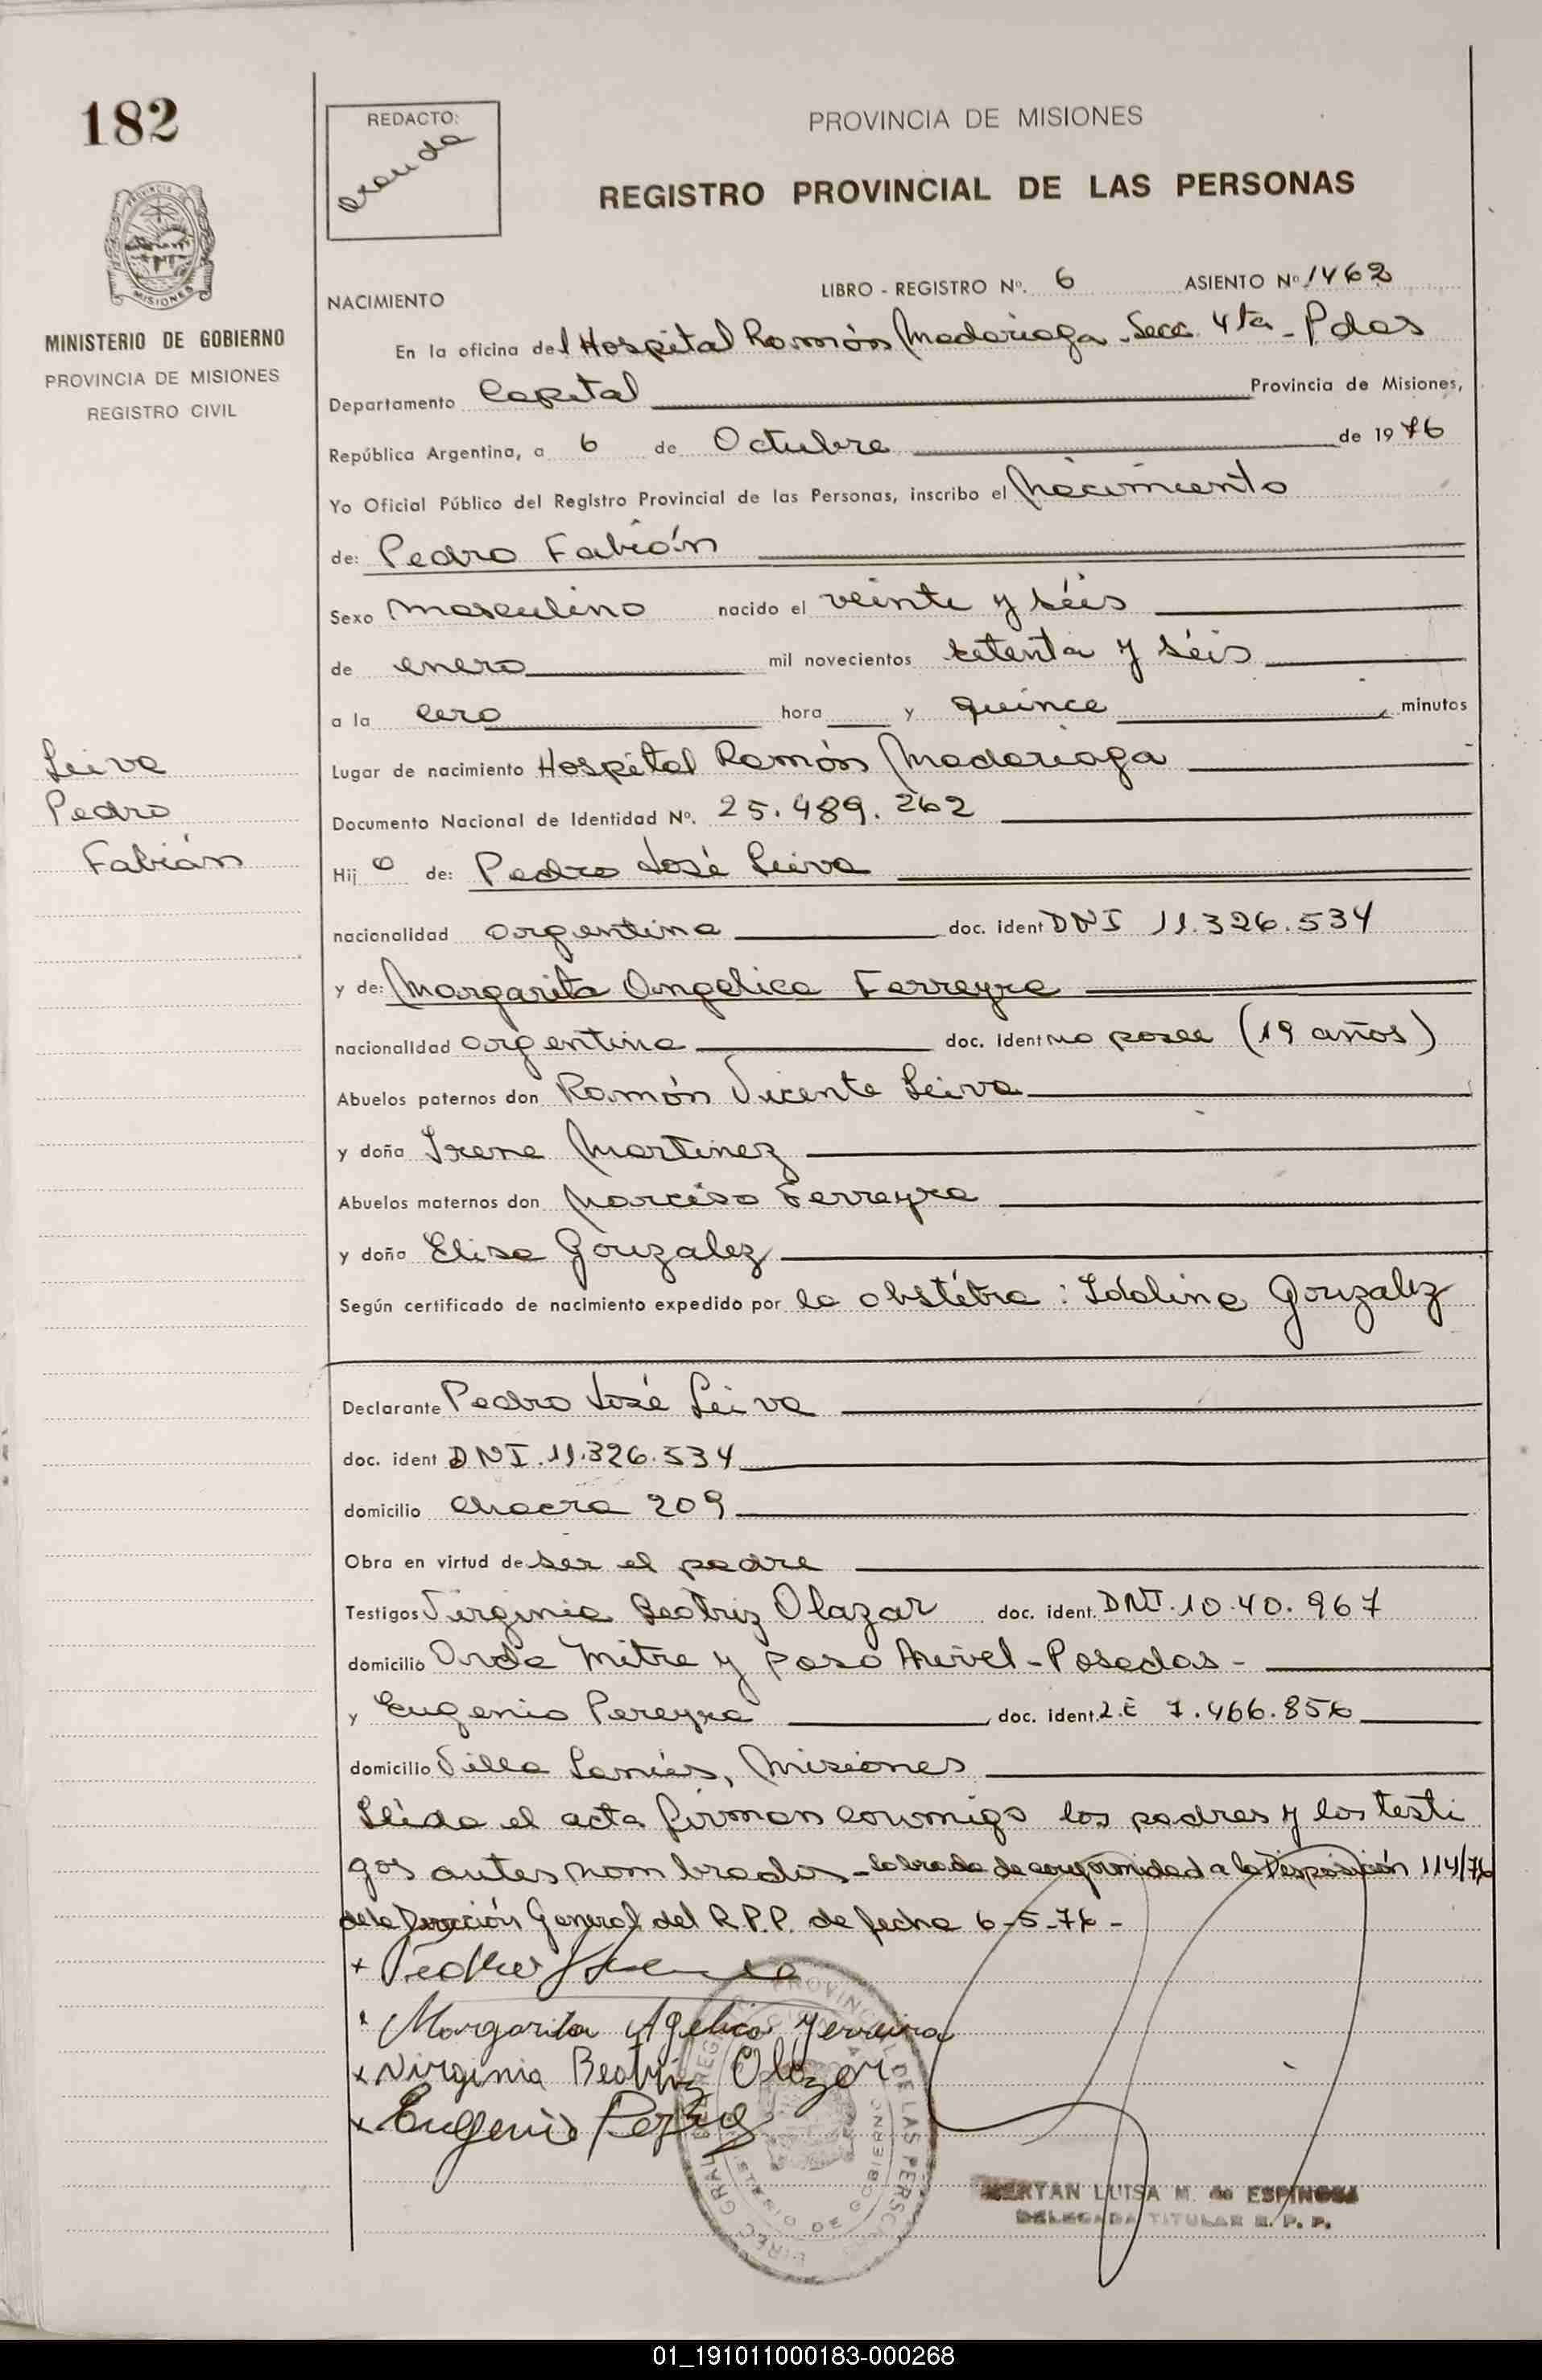 182
REDACTO:
PROVINCIA DE MISIONES
REGISTRO PROVINCIAL DE LAS PERSONAS
MISIONES
MINISTERIO DE GOBIERNO
PROVINCIA DE MISIONES
REGISTRO CIVIL
NACIMIENTO
LIBRO - REGISTRO Nº. 6 ASIENTO Nº 1462
En la oficina del Hospital Ramón Madariaga - Secc. 4ta - Pdas
Departamento Capital Provincia de Misiones,
República Argentina, a 6 de Octubre de 1976
Yo Oficial Público del Registro Provincial de las Personas, inscribo el Nacimiento
de: Pedro Fabián
Sexo masculino nacido el veinte y séis
de enero mil novecientos setenta y séis
a la cero hora y quince minutos
Leiva
Pedro
Fabián
Lugar de nacimiento Hospital Ramón Madariaga
Documento Nacional de Identidad Nº. 25.489.262
Hijo de: Pedro José Leiva
nacionalidad argentina doc. ident DNI 11.326.534
y de: Margarita Angelica Ferreyra
nacionalidad argentina doc. ident no posee (19 años)
Abuelos paternos don Ramón Vicente Leiva
y doña Irene Martinez
Abuelos maternos don Narciso Ferreyra
y doña Elisa Gonzalez
Según certificado de nacimiento expedido por la obstétra: Idalina Gonzalez
Declarante Pedro José Leiva
doc. ident DNI. 11.326.534
domicilio Chacra 209
Obra en virtud de ser el padre
Testigos Virginia Beatriz Olazar doc. ident. DNI. 10.40.967
domicilio Avda Mitre y paso Nivel - Posadas -
y Eugenio Pereyra doc. ident. L.E 7.466.856
domicilio Villa Lanús, Misiones
Leída el acta firman conmigo los padres y los testi
gos antes nombrados - labrada de conformidad a la Disposición 114/76
de la Dirección General del R.P.P. de fecha 6-5-76 -
x Pedro
x Margarita Agelica Ferreira
x Virginia Beatriz Olazar
x Eugenio
LUISA M. de ESPINOSA
DELEGADA TITULAR R. P. P.
01_191011000183-000268